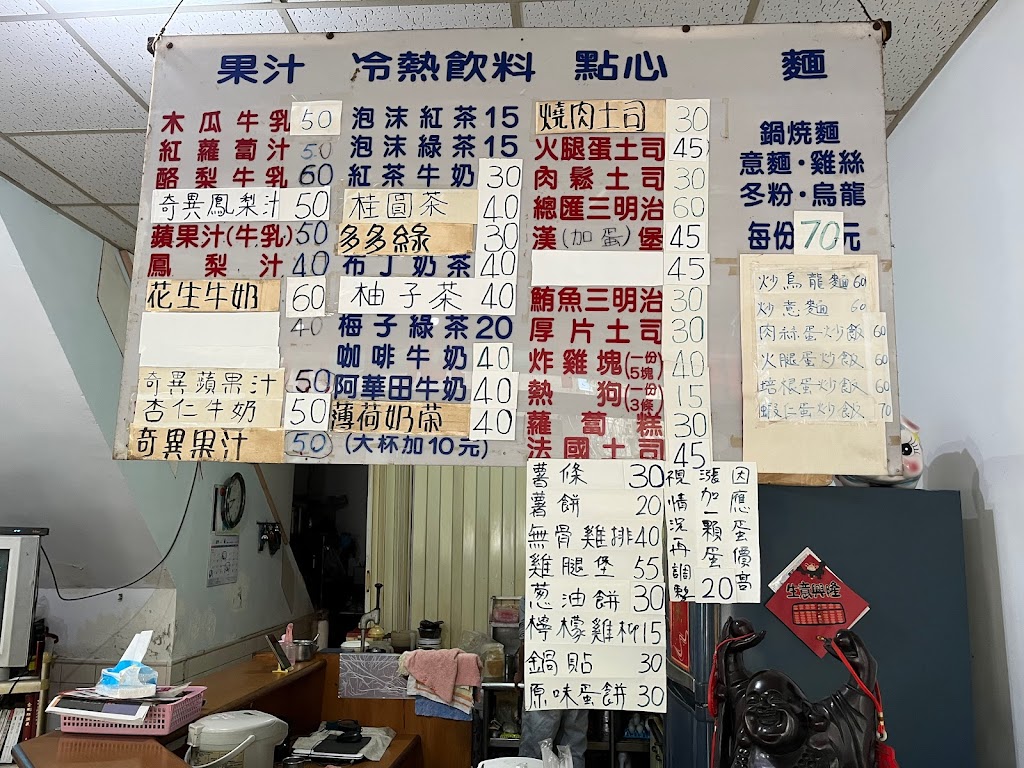 果汁
木瓜牛乳 50
紅蘿蔔汁 50
酪梨牛乳 60
奇異鳳梨汁 50
蘋果汁(牛乳) 50
鳳梨汁 40
花生牛奶 60
40
奇異蘋果汁 50
杏仁牛奶 50
奇異果汁 50
冷熱飲料
泡沫紅茶 15
泡沫綠茶 15
紅茶牛奶 30
桂圓茶 40
多多綠 30
布丁奶茶 40
柚子茶 40
梅子綠茶 20
咖啡牛奶 40
阿華田牛奶 40
薄荷奶茶 40
(大杯加10元)
點心
燒肉土司 30
火腿蛋土司 45
肉鬆土司 30
總匯三明治 60
漢(加蛋)堡 45
45
鮪魚三明治 30
厚片土司 30
炸雞塊(一份5塊) 40
熱狗(一份3條) 15
蘿蔔糕 30
法國土司 45
薯條 30
薯餅 20
無骨雞排 40
雞腿堡 55
蔥油餅 30
檸檬雞柳 15
鍋貼 30
原味蛋餅 30
因應蛋價高
漲加一顆蛋20
視情況再調整
麵
鍋燒麵
意麵·雞絲
冬粉·烏龍
每份70元
炒烏龍麵 60
炒意麵 60
肉絲蛋炒飯 60
火腿蛋炒飯 60
培根蛋炒飯 60
蝦仁蛋炒飯 70
生意興隆